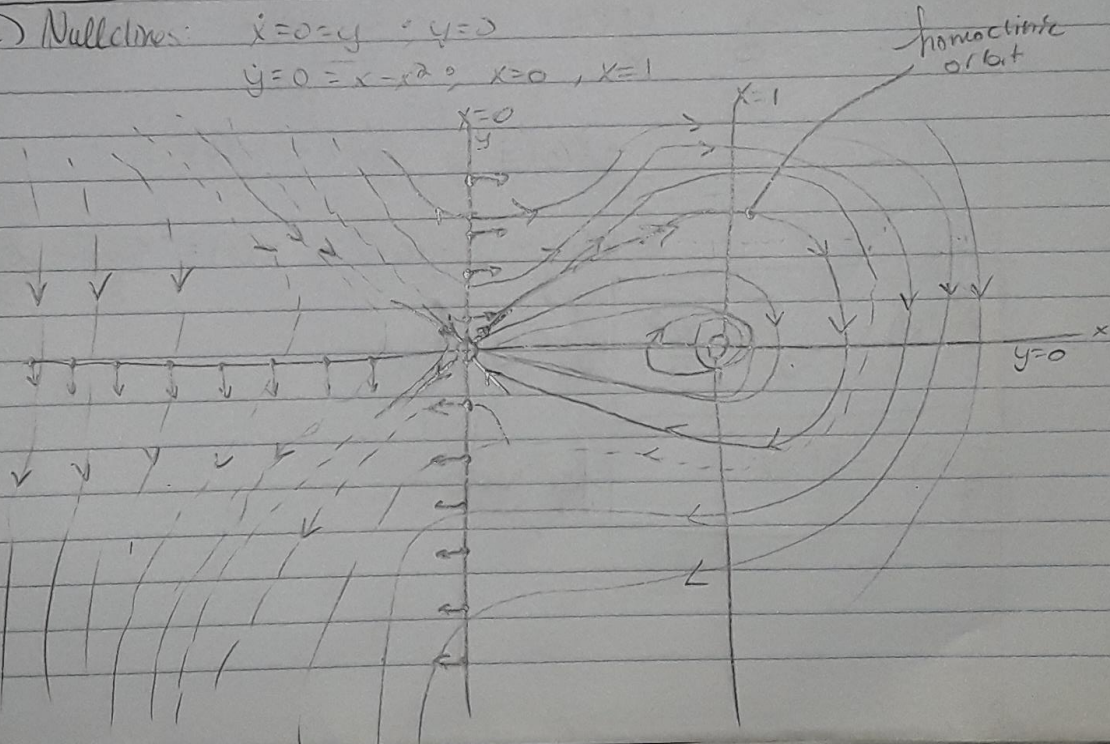 ) Nullclines: ẋ=0=y : y=0
ẏ=0=x-x²: x=0, x=1
homoclinic
orbit
x=0
y
x=1
x
y=0